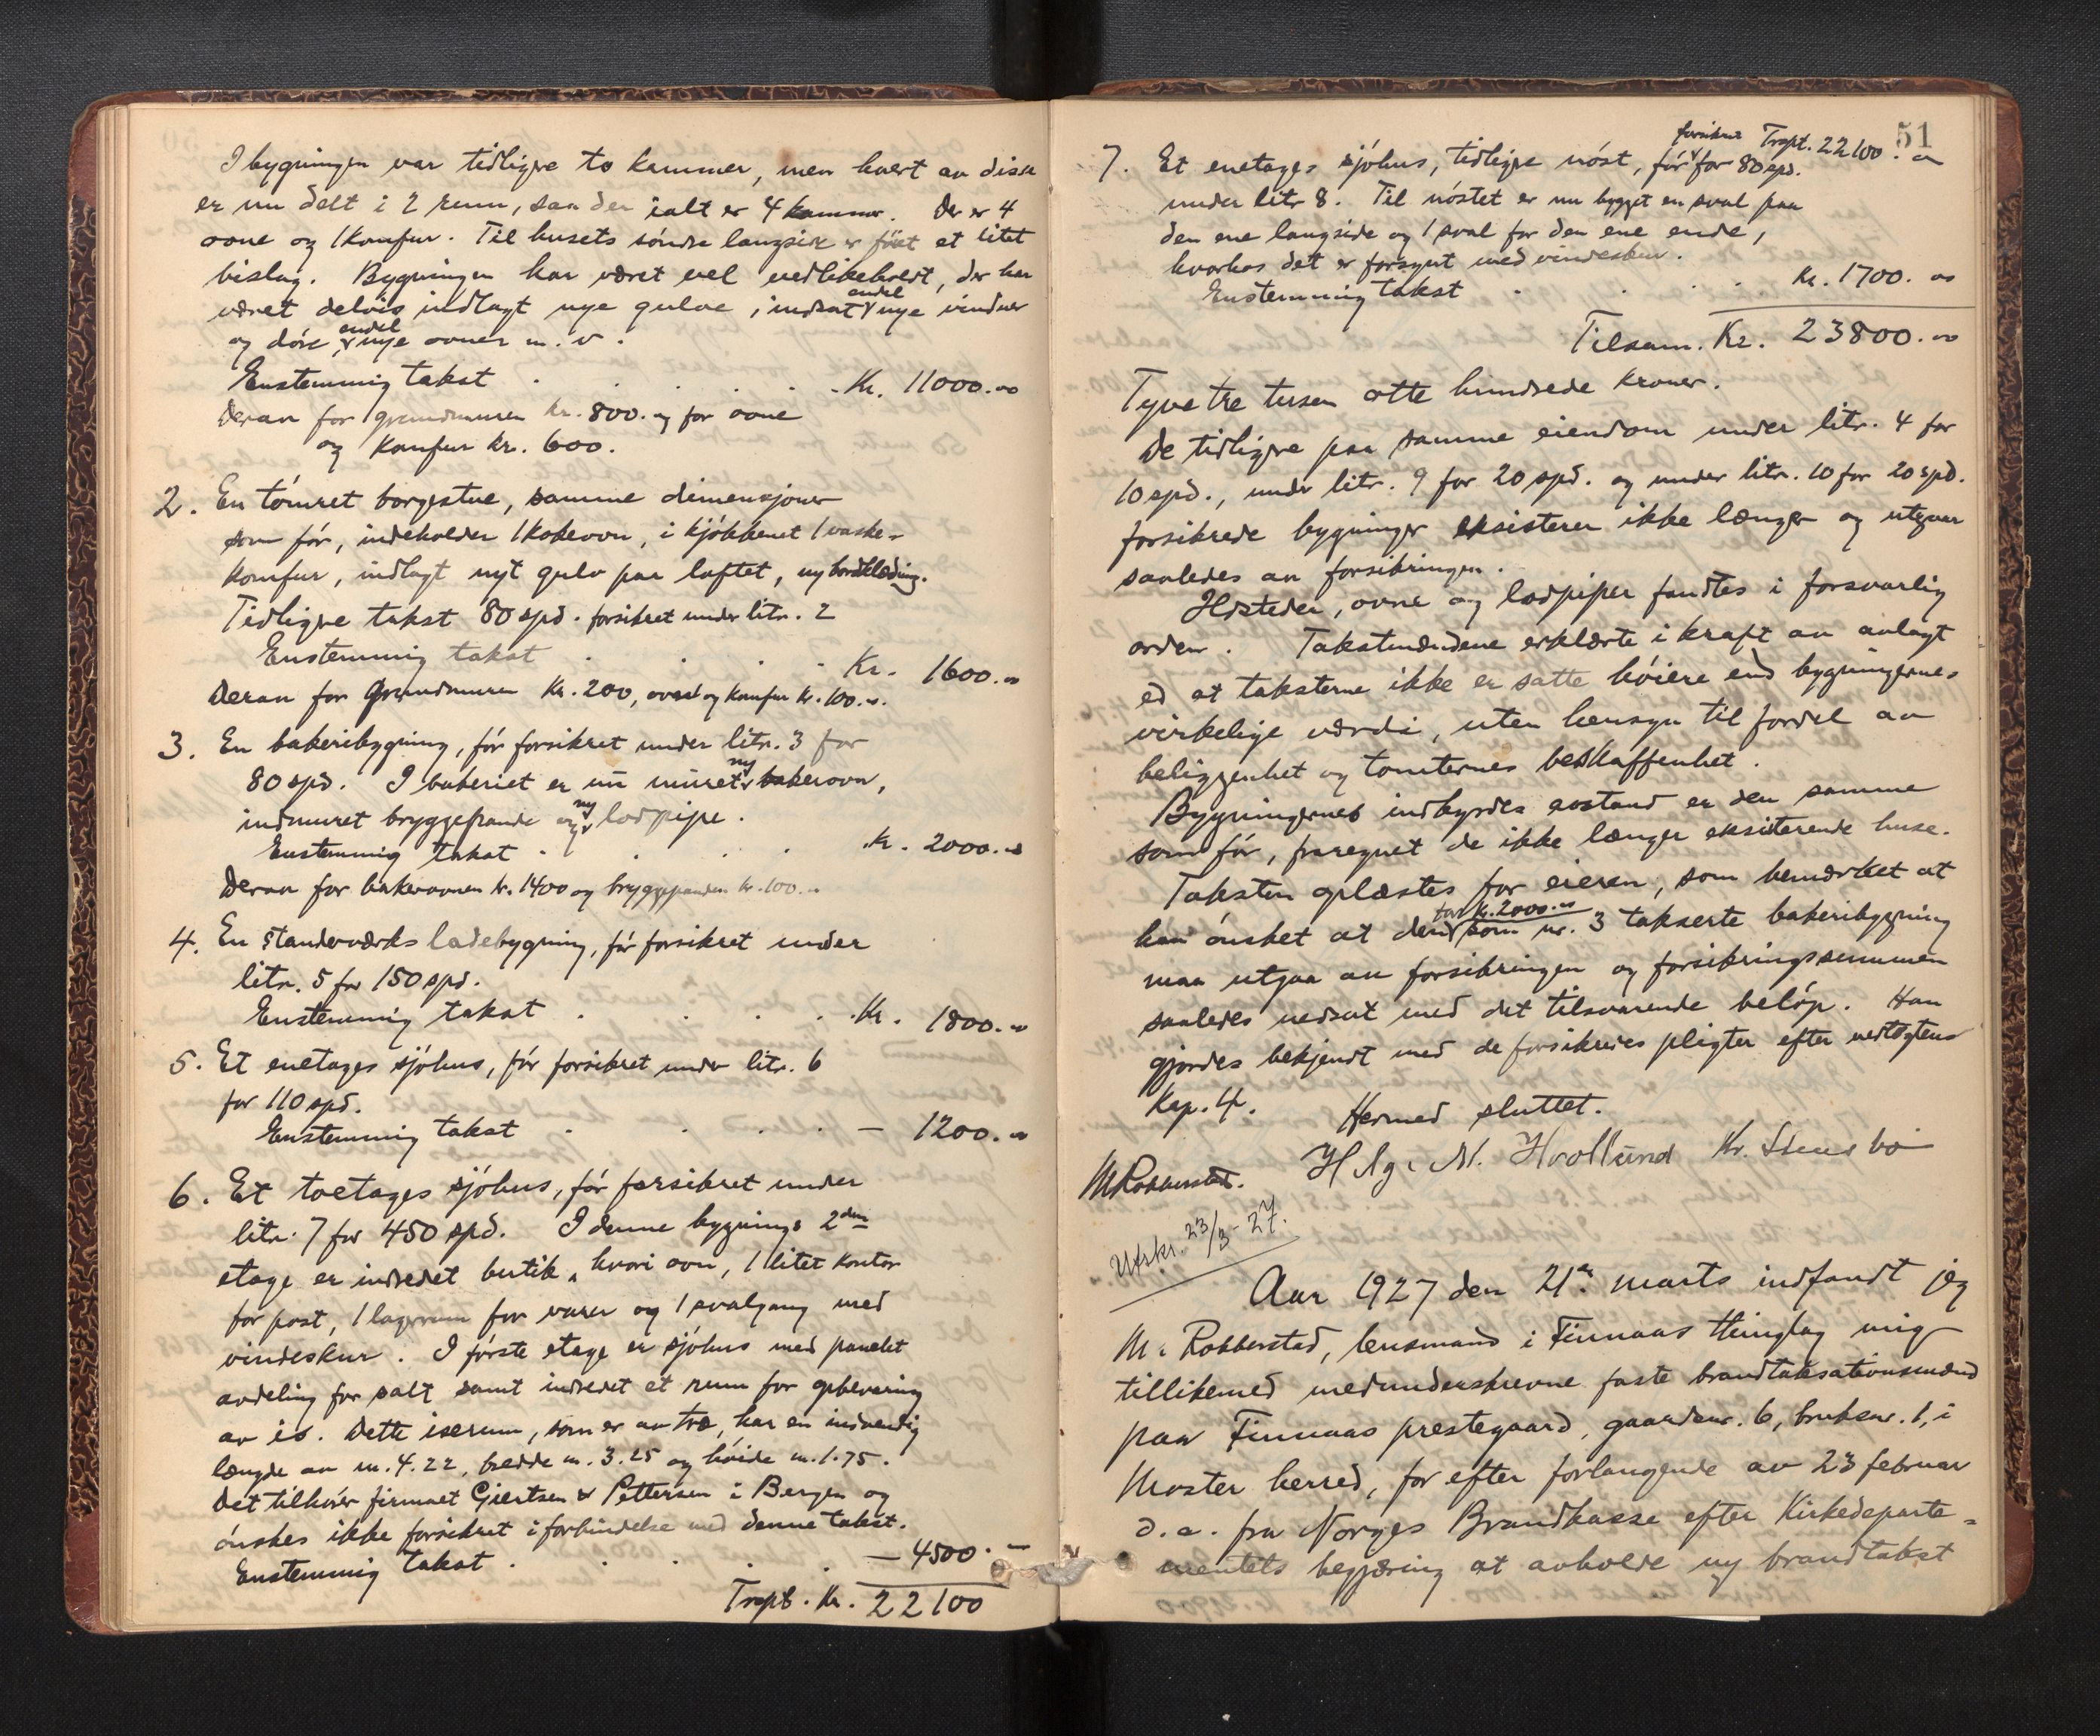 I bygningen var tidligre to kammer, men hvert av disse
er nu delt i 2 rum, saa der ialt er 4 kammer. Der er 4
ovne og 1 komfur. Til husets söndre langside er föiet et litet
bislag. Bygningen har været vel vedlikeholdt, der har
været delvis indlagt nye gulve, indsat endel nye vinduer
og döre, endel nye ovner m. v.
Enstemmig takst . . . . . Kr. 11000.00
Derav for grundmuren kr. 800. og for ovne
og komfur kr. 600.
2. En tömret borgestue, samme dimensjoner
som för, indeholder 1 kokeovn, i kjökkenet 1 vaske-
komfur, indlagt nyt gulv paa loftet, ny bordklædning.
Tidligre takst 80 spd. forsikret under litr. 2
Enstemmig takst . . . . Kr. 1600.00
Derav for Grundmuren Kr. 200, ovn og komfur kr. 100.00.
3. En bakeribygning, för forsikret under litr. 3 for
80 spd. I bakeriet er nu muret ny bakerovn,
indmuret bryggepande og ny lodpipe.
Enstemmig takst . . . . Kr. 2000.00
Derav for bakerovnen kr. 1400 og bryggepanden kr. 100.00
4. En standerværks ladebygning, för forsikret under
litr. 5 for 150 spd.
Enstemmig takst . . . . Kr. 1800.00
5. Et enetages sjöhus, för forsikret under litr. 6
for 110 spd.
Enstemmig takst . . . . — 1200.00
6. Et toetages sjöhus, för forsikret under
litr. 7 for 450 spd. I denne bygnings 2den
etage er indredet butik, hvori ovn, 1 litet kontor
for post, 1 lagerrum for varer og 1 svalgang med
vindeskur. I förste etage er sjöhus med panelet
avdeling for salt samt indredet et rum for opbevaring
av is. Dette iserum, som er av træ, har en indvendig
længde av m. 4.22, bredde m. 3.25 og höide m. 1.75.
Det tilhörer firmaet Giertsen & Pettersen i Bergen og
önskes ikke forsikret i forbindelse med denne takst.
Enstemmig takst . . . . — 4500. —
Trspt. Kr. 22100
51
Trspt. 22100.00
7. Et enetages sjöhus, tidligre nöst, för forsikret for 80 spd.
under litr 8. Til nöstet er nu bygget en sval paa
den ene langside og 1 sval for den ene ende,
hvorhos det er forsynt med vindeskur.
Enstemmig takst . . . . Kr. 1700.00
Tilsam. Kr. 23800.00
Tyve tre tusen otte hundrede kroner.
De tidligre paa samme eiendom under litr. 4 for
10 spd., under litr. 9 for 20 spd. og under litr. 10 for 20 spd.
forsikrede bygninger eksisterer ikke længer og utgaar
saaledes av forsikringen.
Ildsteder, ovne og lodpiper fandtes i forsvarlig
orden. Takstmændene erklærte i kraft av avlagt
ed at taksterne ikke er satte höiere end bygningernes
virkelige værdi, uten hensyn til fordel av
beliggenhet og tomternes beskaffenhet.
Bygningernes indbyrdes avstand er den samme
som för, fraregnet de ikke længer eksisterende huse.
Taksten oplæstes for eieren, som bemerket at
han önsket at den for kr. 2000.00 som nr. 3 takserte bakeribygning
maa utgaa av forsikringen og forsikringssummen
saaledes nedsat med det tilsvarende belöp. Han
gjordes bekjendt med de forsikredes pligter efter vedtægtens
Kap. 4. Hermed sluttet.
M Robberstad. Helge N. Hvollund Kr. Stensbö
Utskr. 23/3 - 27.
Aar 1927 den 21de marts indfandt jeg
M. Robberstad, lensmand i Finnaas thinglag mig
tillikemed medunderskrevne faste brandtaksationsmænd
paa Finnaas prestegaard, gaardsnr. 6, bruksnr. 1, i
Moster herred, for efter forlangende av 23 februar
d. a. fra Norges Brandkasse efter Kirkedeparte-
mentets begjæring at avholde ny brandtakst